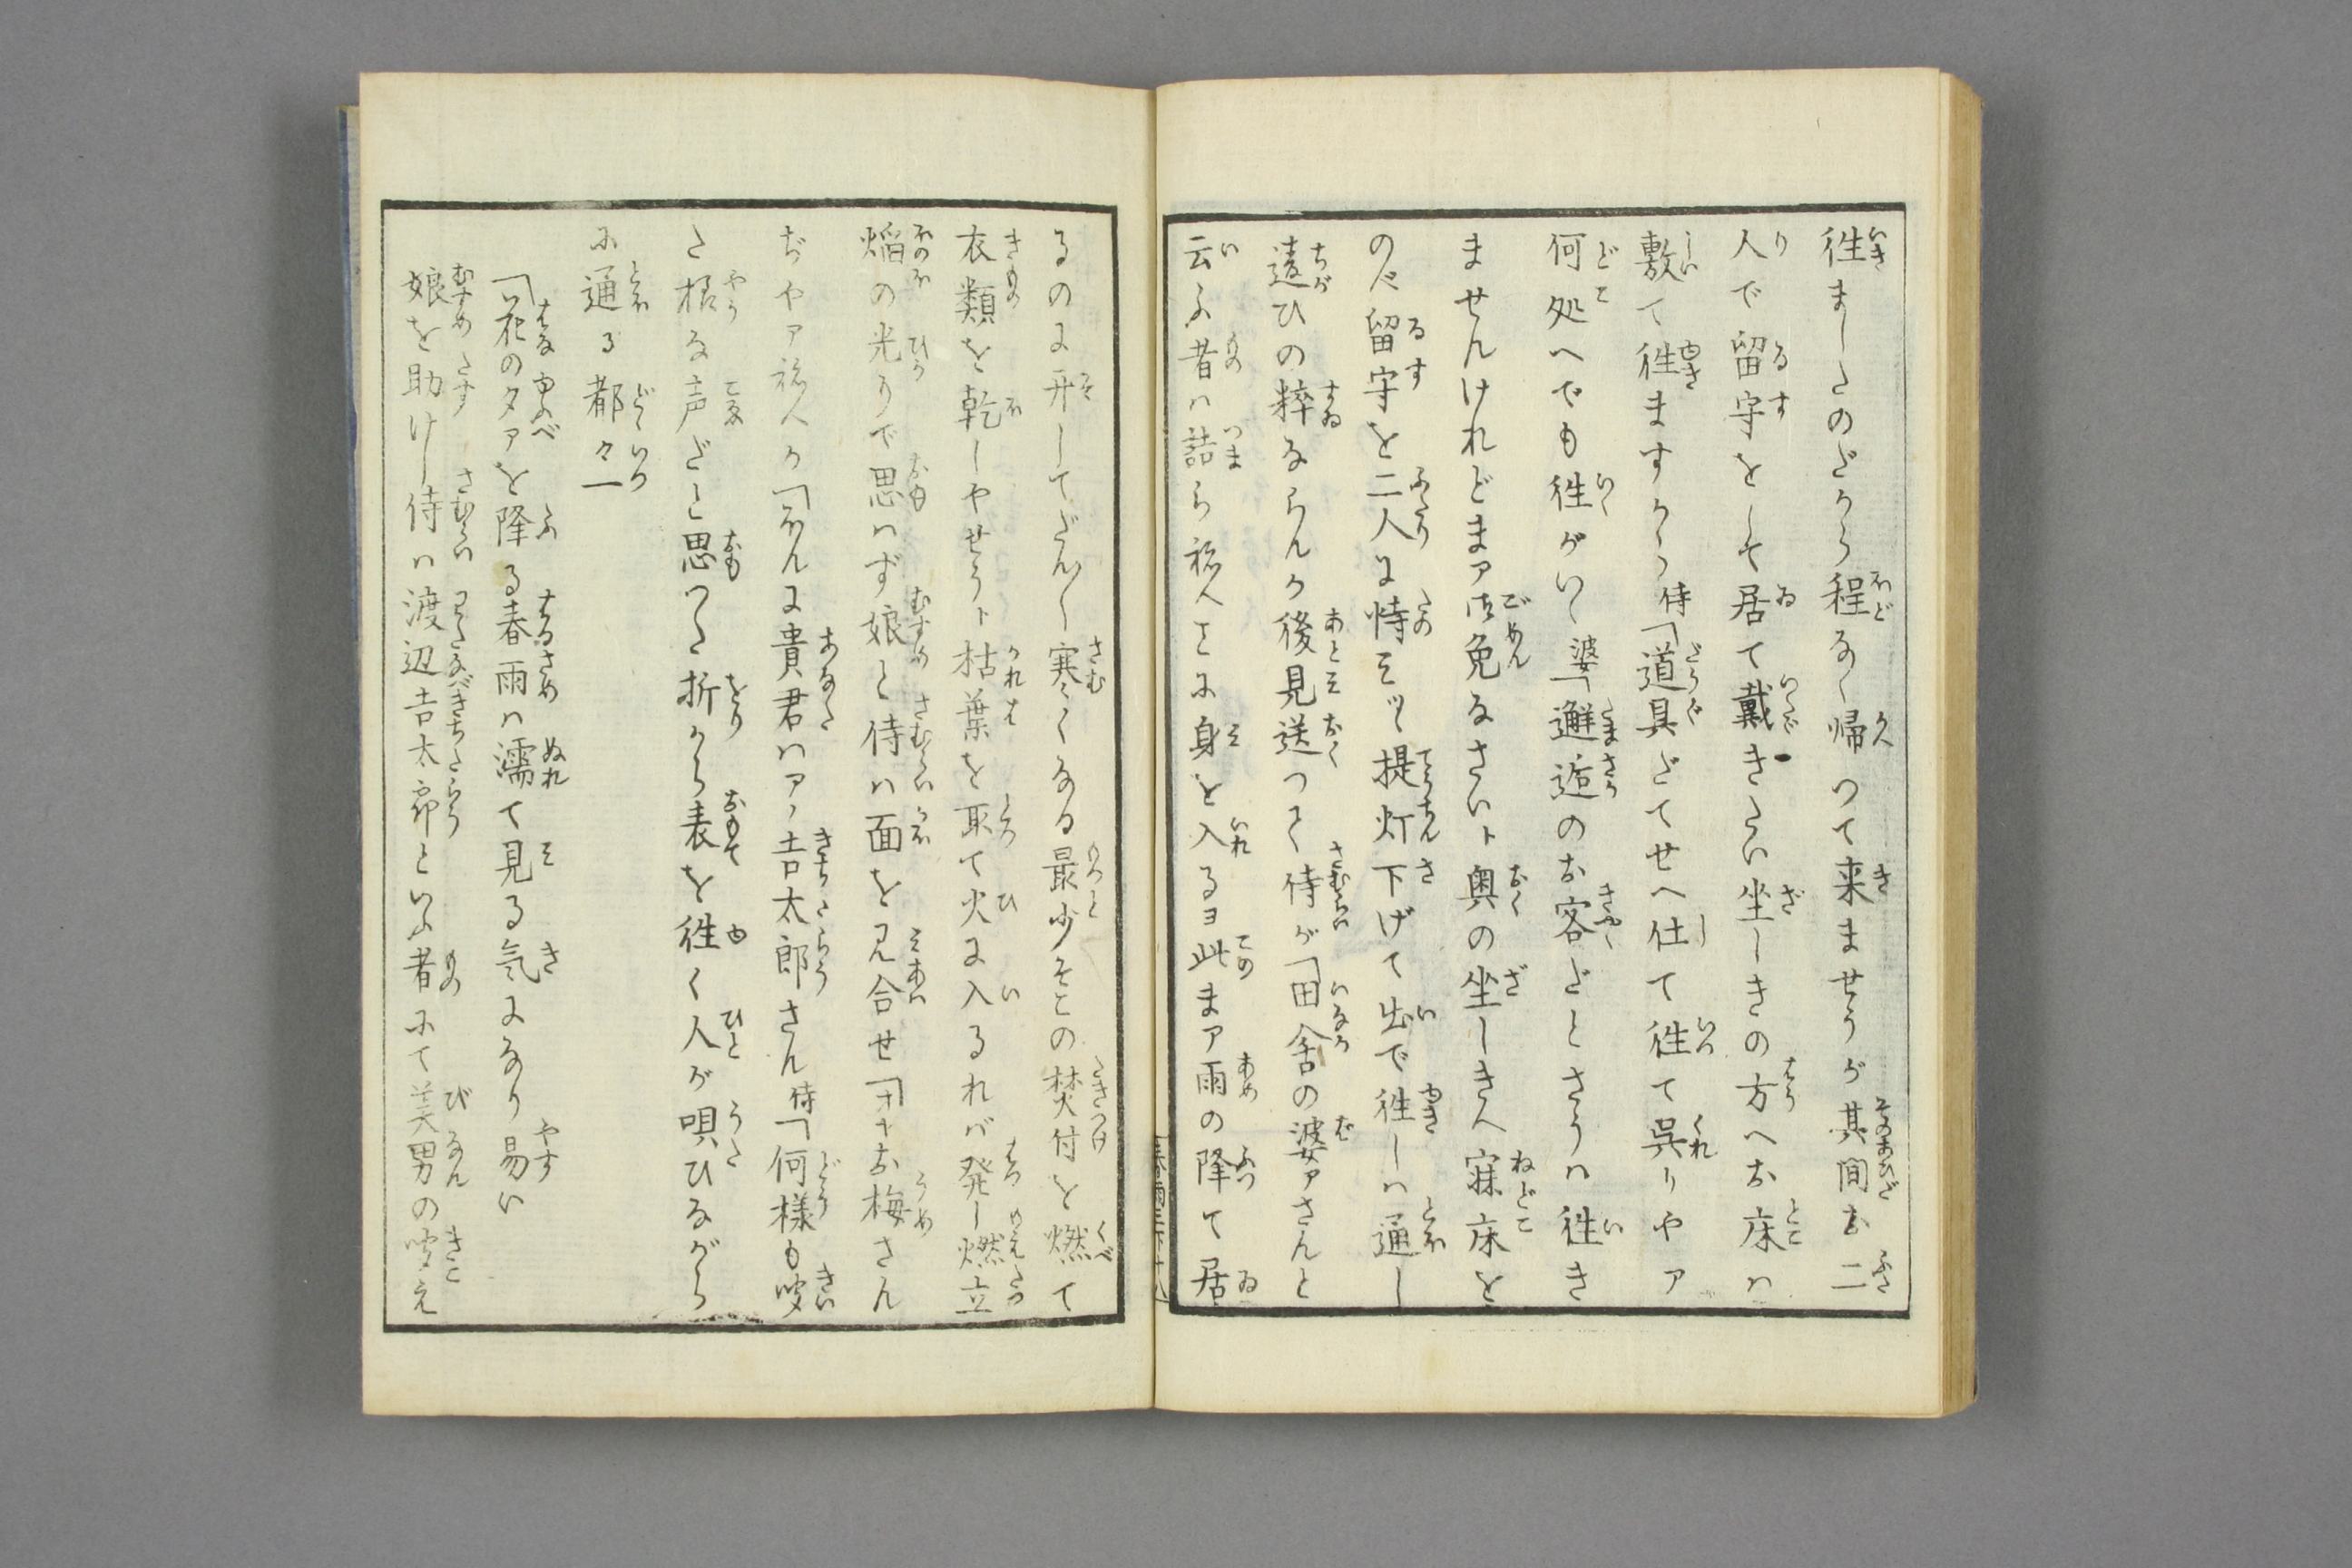 往ましたのだから程なく帰つて来ませうが其間お二
人で留守をして居て戴きたい坐しきの方へお床は
敷て往ますから 侍「道具だてせへ仕て往て呉りやア
何処へでも往がいゝ 婆「邂逅のお客だとさうは往き
ませんけれどまア御免なさいト奥の坐しきへ寐床を
のべ留守を二人に恃みツヽ提灯下げて出で往しは通し
違ひの粋ならんか後見送つて侍が「田舎の婆アさんと
云ふ者は詰ら独へに身を入るヨ此まア雨の降て居
るのに 而してだん〳〵寒くなる最少そこの焚付を燃て
衣類を乾しやせうト枯葉を取て火に入るれバ発し燃立
焔の光りで思はず娘と侍は面を見合せ「オヤお梅さん
ぢやア 「ほんに貴君はアノ吉太郎さん 侍「何様も咬
た様な声だと思つた折から表を往く人が唄ひながら
に通る都々一
「花の夕アを降る春雨は濡て見る気になり易い
娘を助けし侍は渡辺吉太郎といふ者にて美男の咬え